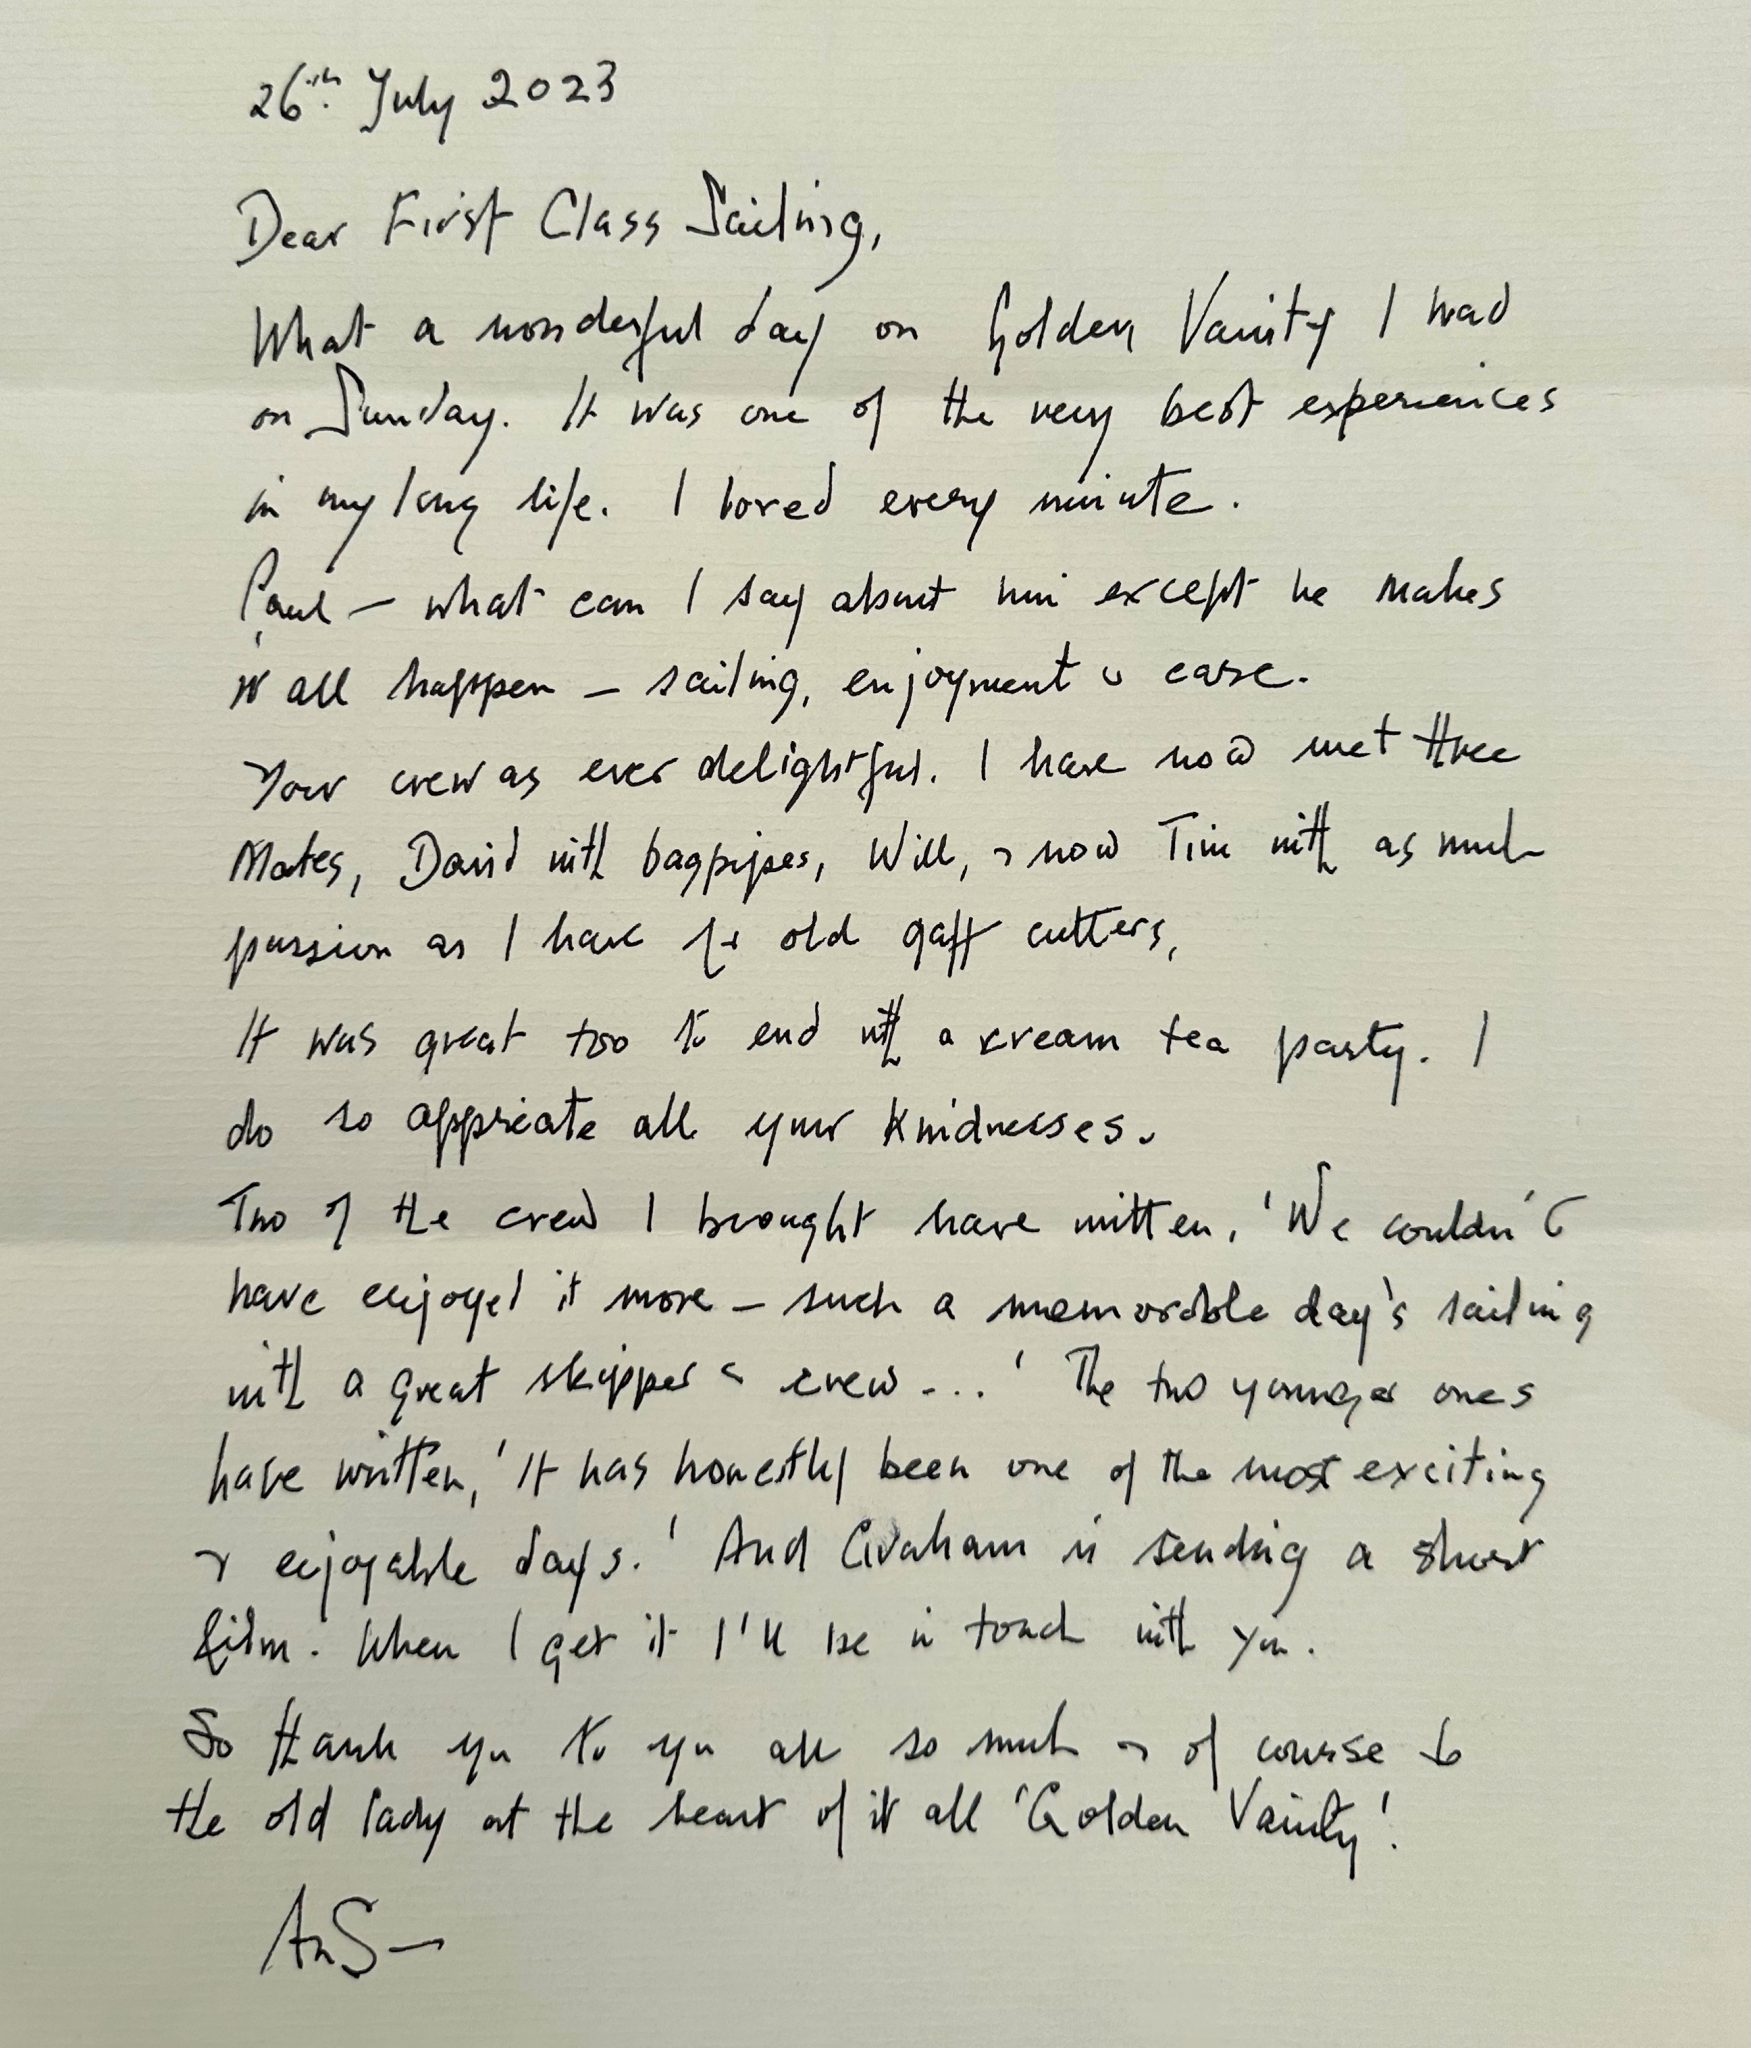 26th July 2023
Dear First Class Sailing,
What a wonderful day on Golden Vanity I had
on Sunday. It was one of the very best experiences
in my long life. I loved every minute.
Paul – what can I say about him except he makes
it all happen – sailing, enjoyment & ease.
Your crew as ever delightful. I have now met three
Mates, David with bagpipes, Will, & now Tim with as much
passion as I have for old gaff cutters,
It was great too to end with a cream tea party. I
do so appriciate all your kindnesses.
Two of the crew I brought have written, 'We couldn't
have enjoyed it more – such a memorable day's sailing
with a great skipper & crew ...' The two younger ones
have written, 'It has honestly been one of the most exciting
& enjoyable days.' And Graham is sending a short
film. When I get it I'll be in touch with you.
So thank you to you all so much & of course to
the old lady at the heart of it all 'Golden Vanity'!